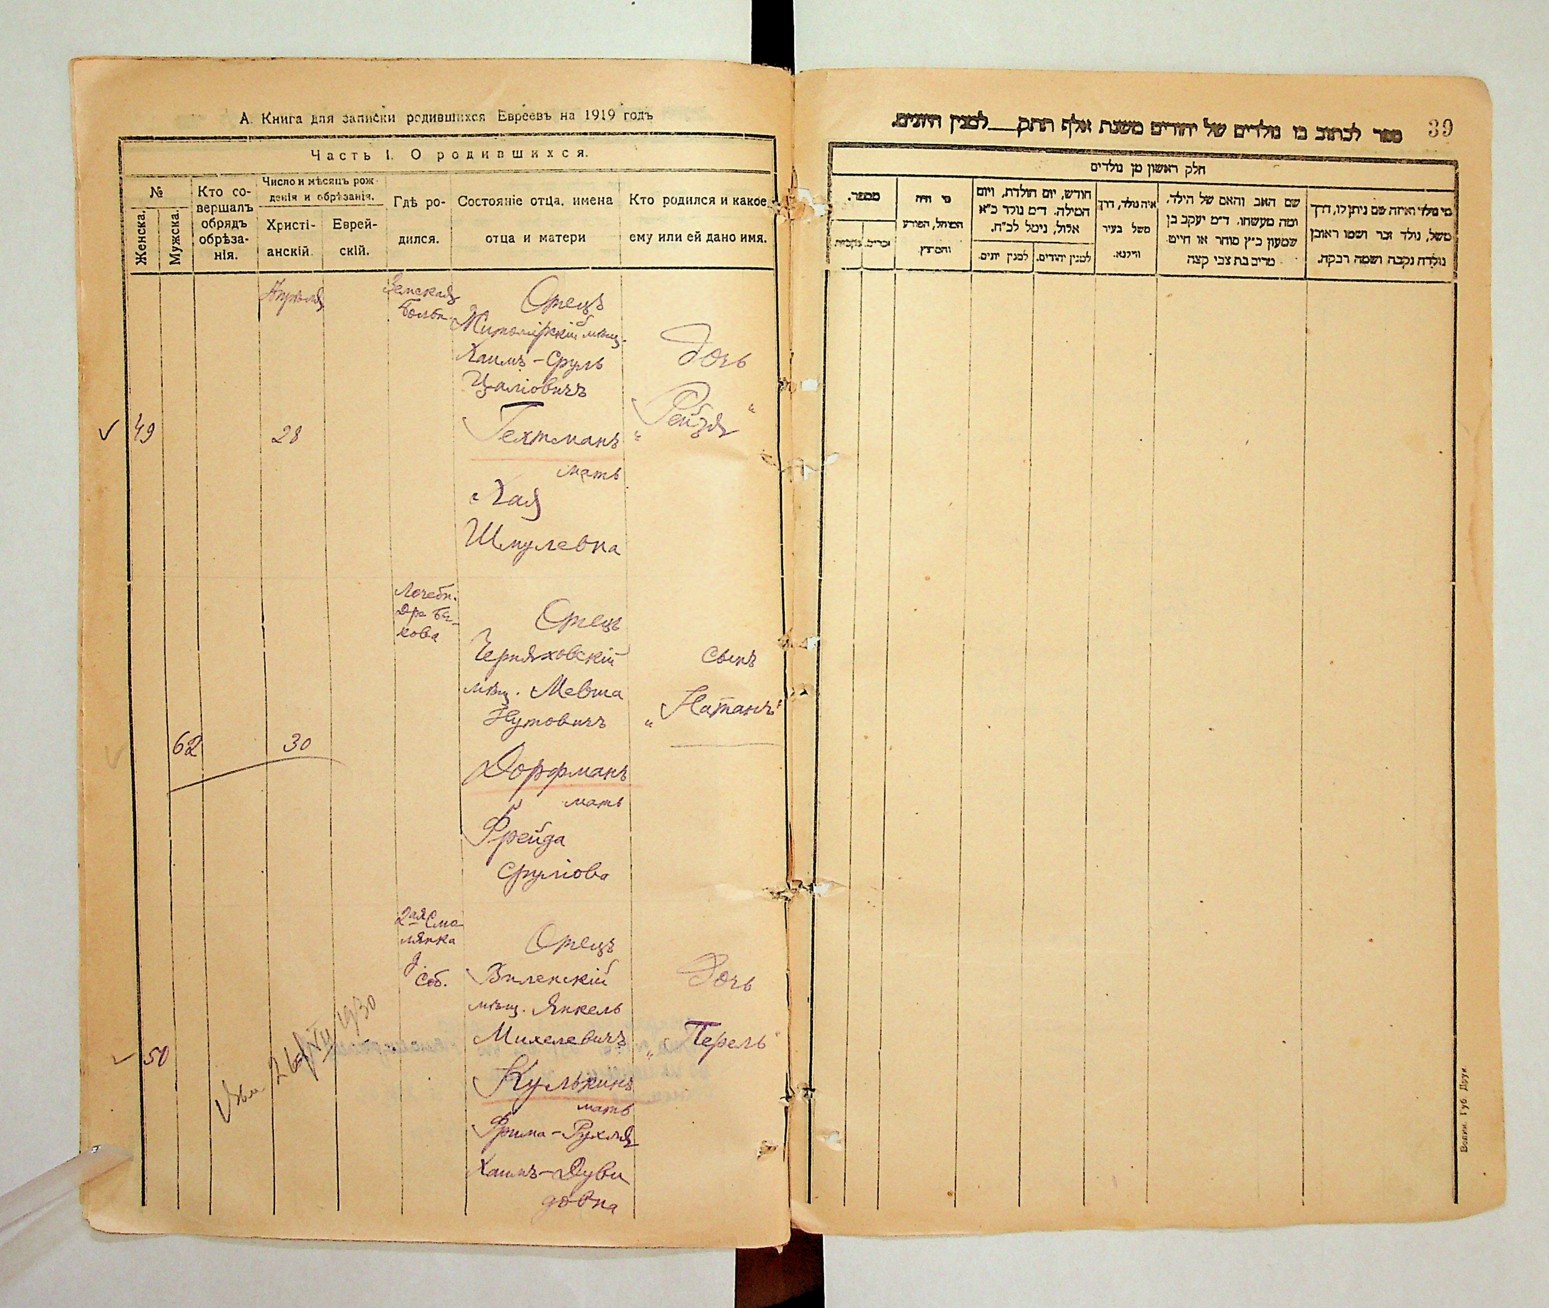 А. Книга для записки родившихся Евреевъ на 1919 годъ
Часть I. О родившихся.
№
Женска.
Мужска.
Кто со-
вершалъ
обрядъ
обрѣза-
нія.
Число и мѣсяцъ рож
денія и обрѣзанія.
Христі-
анскій
Еврей-
скій.
Гдѣ ро-
дился.
Состояніе отца, имена
отца и матери
Кто родился и какое
ему или ей дано имя.
49
Апрѣля
28
Земская
Больн.
Отецъ
Житомірскій мѣщ.
Хаимъ-Сруль
Цаліовичъ
Гехтманъ
мать
Хая
Шмулевна
Дочь
„Рейзя"
62
30
Лечебн.
Д-ра Бы-
кова
Отецъ
Черняховскій
мѣщ. Мевша
Нутовичъ
Дорфманъ
мать
Фрейда
Сруліова
сынъ
„Натанъ"
50
2ая Смо-
лянка
д.
Соб.
Отецъ
Виленскій
мѣщ. Янкель
Михелевичъ
Кулькинъ
мать
Фрима-Рухля
Хаимъ-Дуви
довна
Дочь
„Перель"
26/XII 1930
39
ספר לכתוב בו נולדים של יהודים משנת אלף התק__ למנין היונים.
חלק ראשון מן נולדים
מספר.
זכרים.
נקבות
מי היה
המוהל, הפורע
והמוצץ
חודש, יום הולדת, ויום
המילה. ד"מ נולד כ"א
אלול, נימל לכ"ח.
למנין יונים.
למנין יהודים.
איה נולד, דרך
משל בעיר
ווילנא.
שם האב והאם של הילד,
ומה מעשהו. ד"מ יעקב בן
שמעון כ"ץ סוחר או חיים
מרים בת צבי קצה
מי נולד ואיזה שם ניתן לו, דרך
משל, נולד זכר ושמו ראובן
נולדה נקבה ושמה רבקה.
Волын. Губ. Друк.